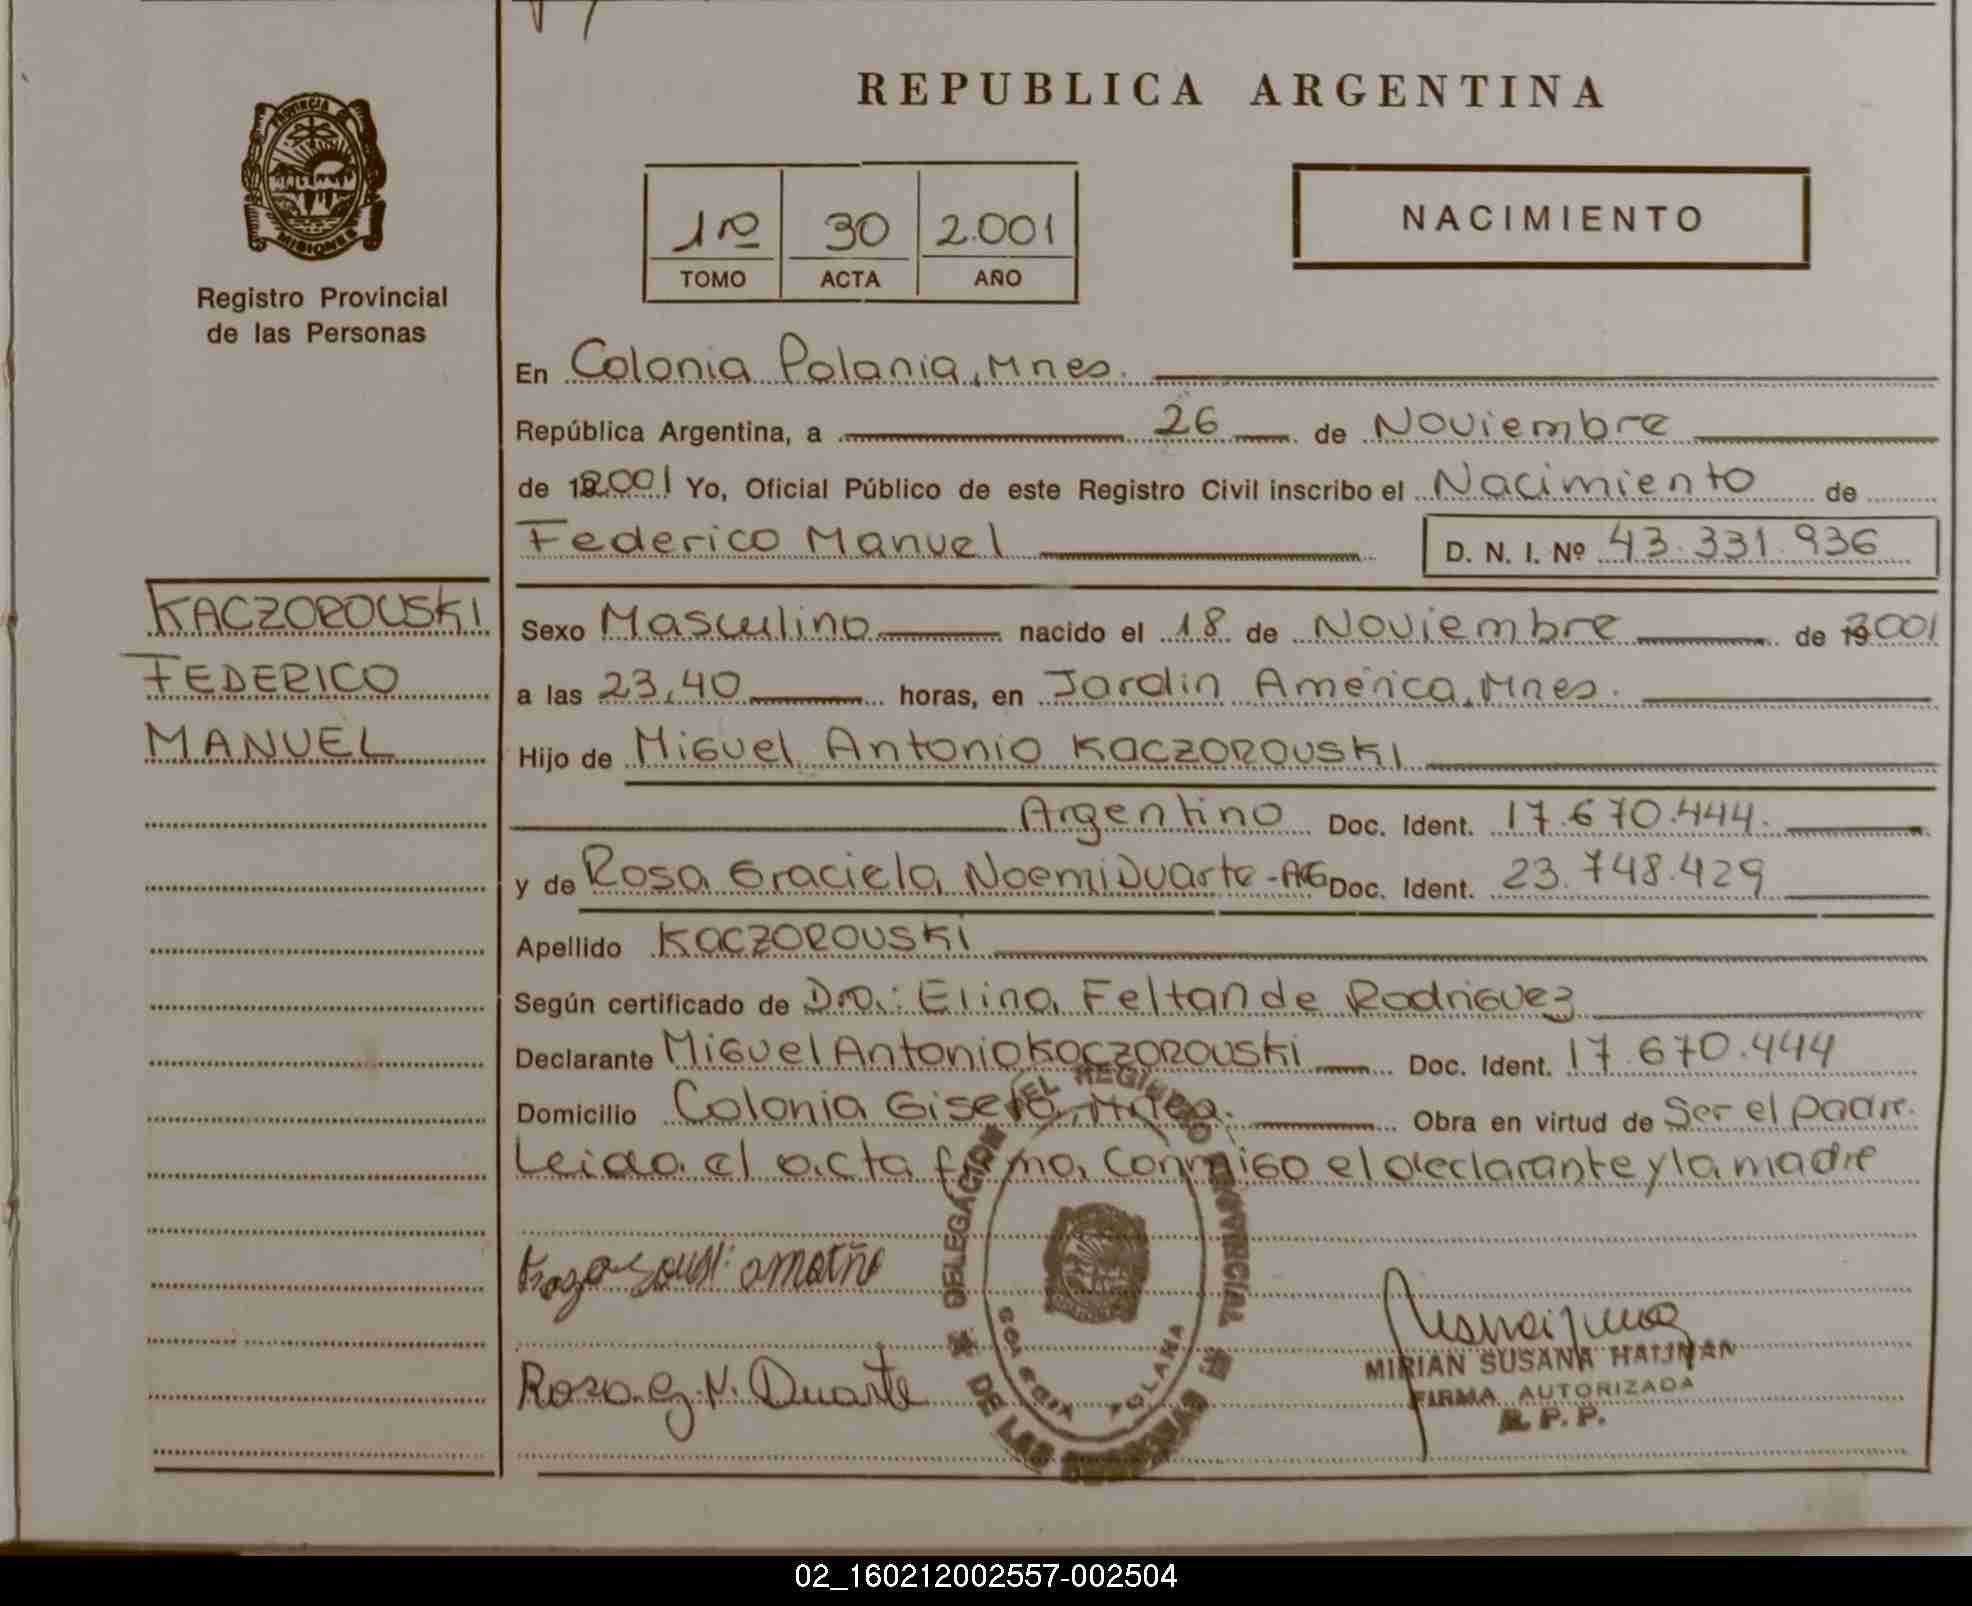 REPUBLICA ARGENTINA
PROVINCIA DE
MISIONES
Registro Provincial
de las Personas
1ro 30 2.001
TOMO ACTA AÑO
NACIMIENTO
En Colonia Polania, Mnes.
República Argentina, a 26 de Noviembre
de 2001 Yo, Oficial Público de este Registro Civil inscribo el Nacimiento de
Federico Manuel D. N. I. Nº 43.331.936
KACZOROUSKI
FEDERICO
MANUEL
Sexo Masculino nacido el 18 de Noviembre de 2001
a las 23,40 horas, en Jardin América, Mnes.
Hijo de Miguel Antonio KACZOROUSKI
Argentino Doc. Ident. 17.670.444.
y de Rosa Graciela Noemi Duarte - ARG Doc. Ident. 23.748.429
Apellido KACZOROUSKI
Según certificado de Dra: Elina Feltan de Rodriguez
Declarante Miguel Antonio KACZOROUSKI Doc. Ident. 17.670.444
Domicilio Colonia Gisela, Mnes. Obra en virtud de Ser el padre.
Leida el acta firma conmigo el declarante y la madre
DELEGACION DEL REGISTRO PROVINCIAL
DE LAS PERSONAS
POLANA
Rosa G. N. Duarte
MIRIAN SUSANA
FIRMA AUTORIZADA
R. P. P.
02_160212002557-002504